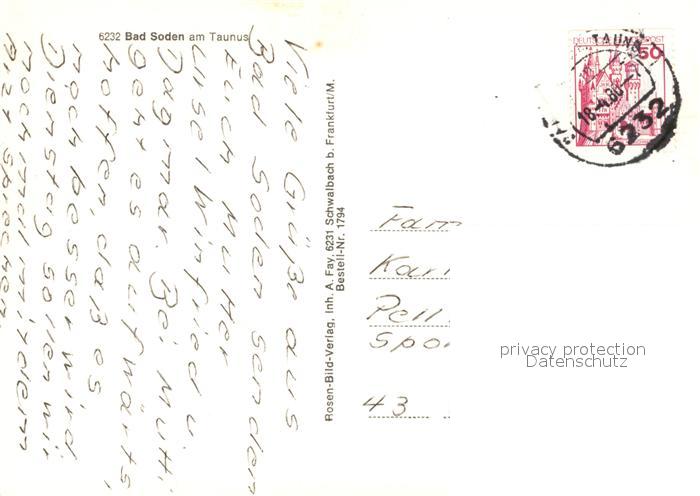 6232 Bad Soden am Taunus
Viele Grüße aus
Bad Soden senden
Euch Mutter
Luise, Winfried u.
Dagmar. Bei Mutti
geht es aufwärts,
hoffen, daß es
noch besser wird
Dienstag sollen wir
noch mal mit dem
Arzt sprechen.
Rosen-Bild-Verlag, Inh. A. Fay, 6231 Schwalbach b. Frankfurt/M.
Bestell-Nr. 1794
DEUTSCHE BUNDESPOST
50
TAUNUS
18.-4.80
6232
Fam
Kar
Pell
Spo
43
privacy protection
Datenschutz